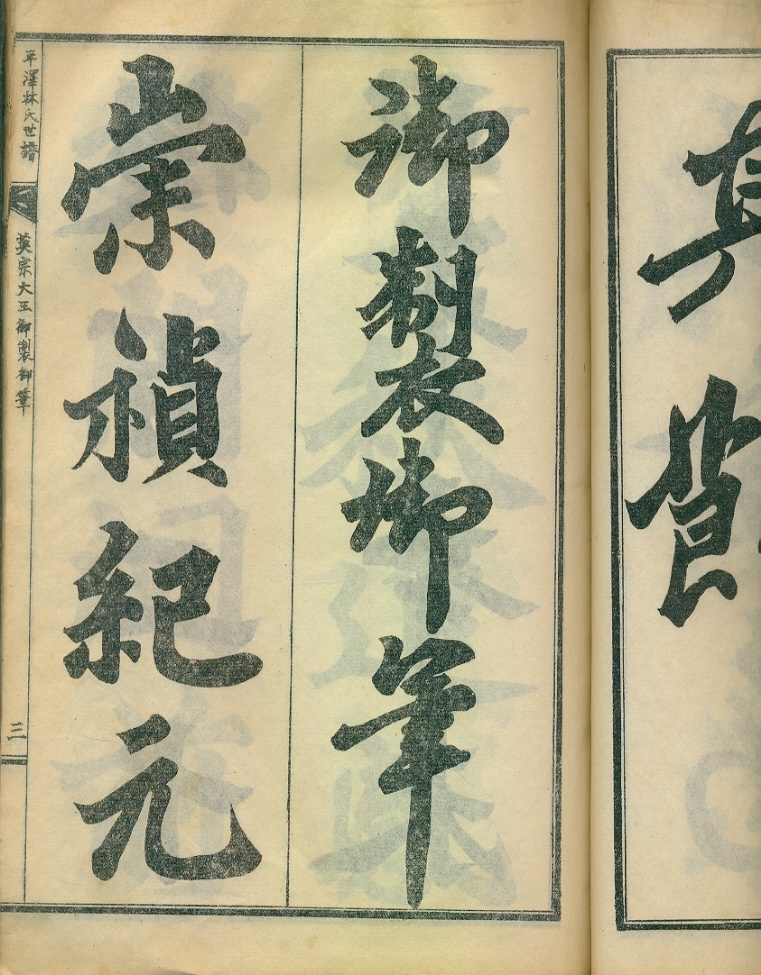 御製御筆
崇禎紀元
平澤林氏世譜
英宗大王御製御筆
三